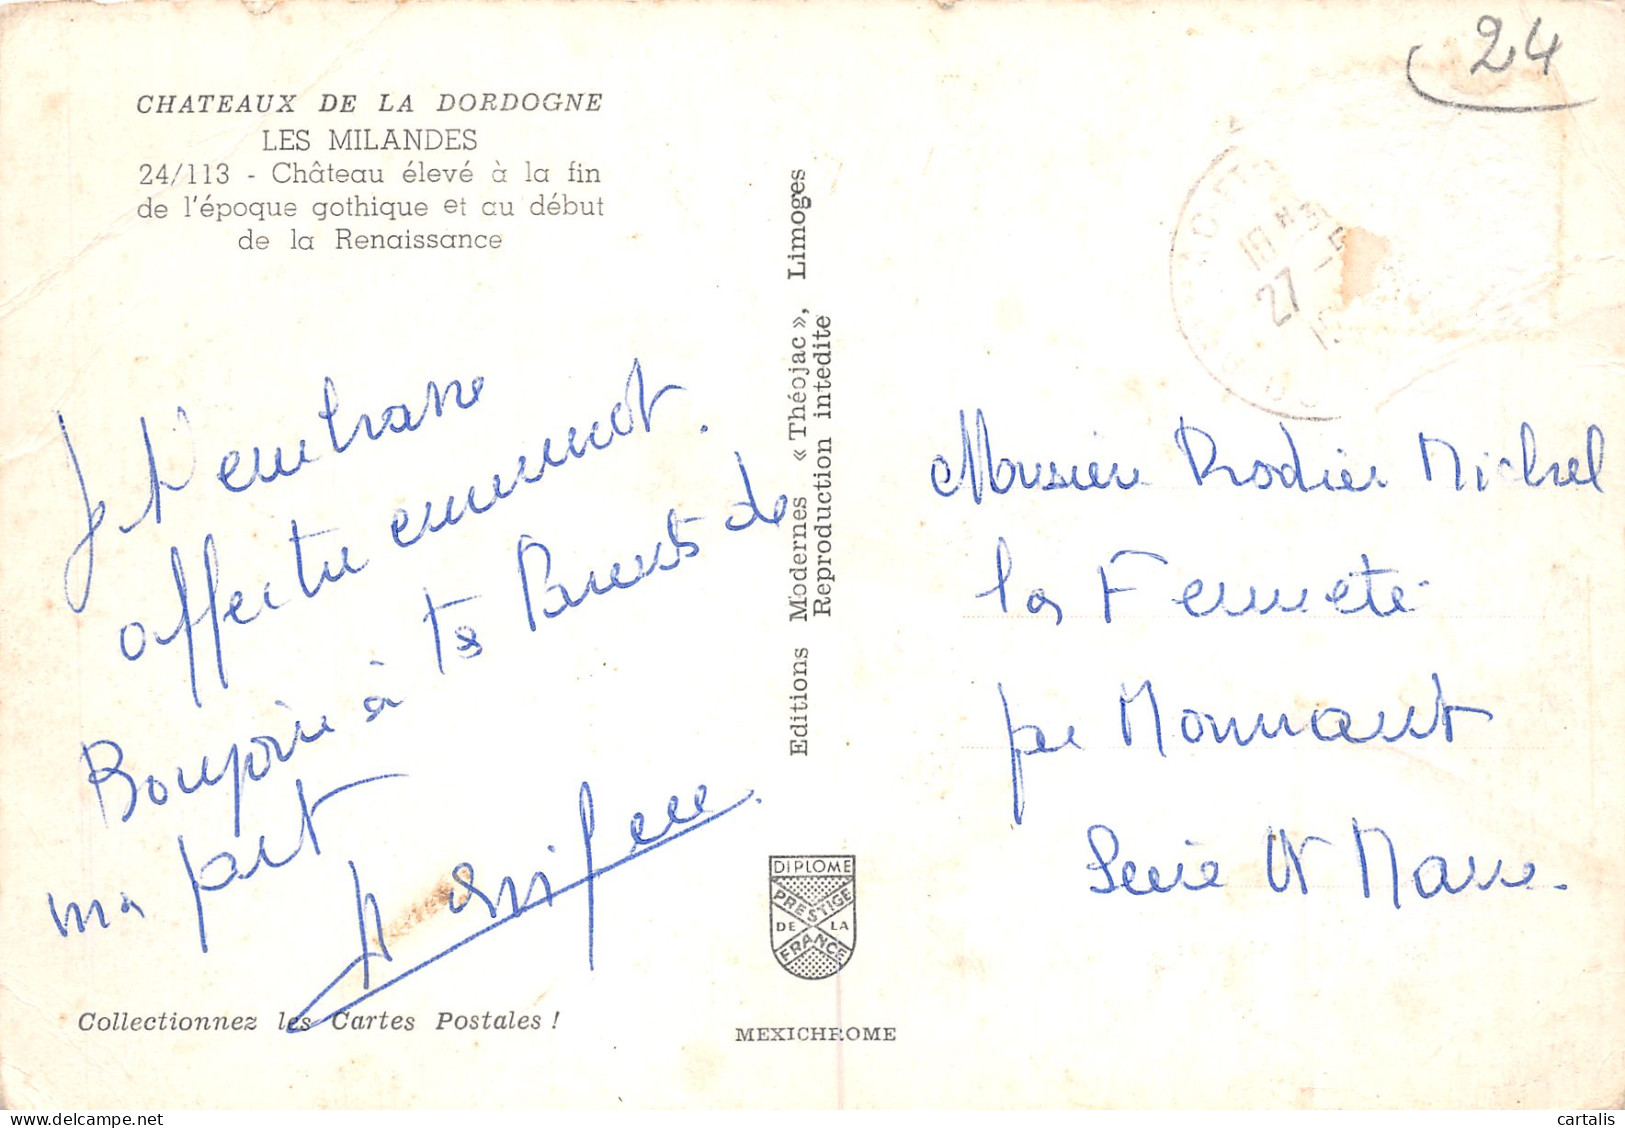 24
CHATEAUX DE LA DORDOGNE
LES MILANDES
24/113 - Château élevé à la fin
de l'époque gothique et au début
de la Renaissance
Je t'embrasse
affectueusement.
Bonjour à tes Parents de
ma part
Collectionnez les Cartes Postales !
Editions Modernes « Théojac », Limoges
Reproduction intedite
DIPLOME
PRESTIGE
DE LA
FRANCE
MEXICHROME
18 H
27 -5
Monsieur Rodier Michel
la Fermeté
par Mormant
Seine et Marne.
cartalis